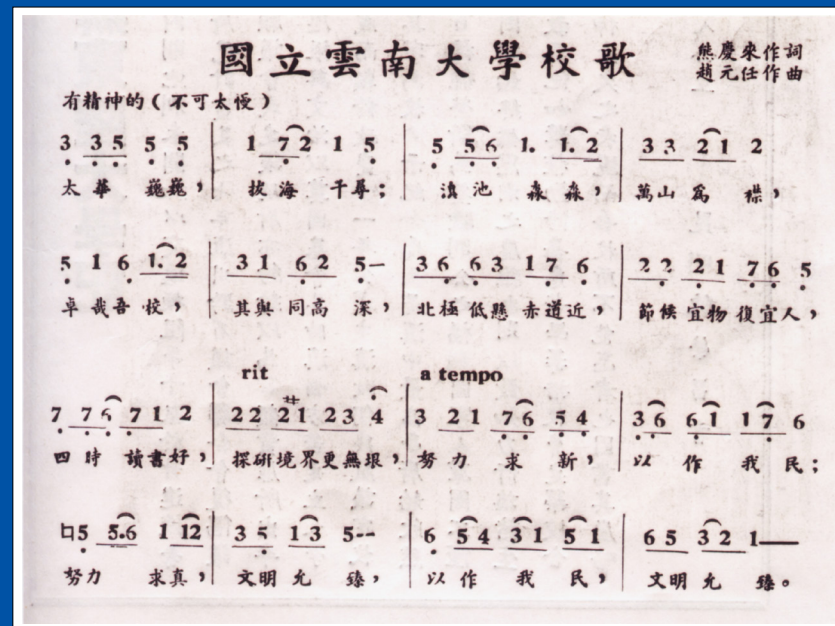 國立雲南大學校歌
熊慶來作詞
趙元任作曲
有精神的(不可太慢)
3 3 5 5 5 | 1 7 2 1 5 | 5 5 6 1. 1. 2 | 3 3 2 1 2
太華巍巍, 拔海千尋; 滇池淼淼, 萬山為襟,
5 1 6 1. 2 | 3 1 6 2 5— | 3 6 6 3 1 7 6 | 2 2 2 1 7 6 5
卓哉吾校, 其與同高深, 北極低懸赤道近, 節候宜物復宜人,
rit a tempo
7 7 6 7 1 2 | 2 2 2 1 2 3 4 | 3 2 1 7 6 5 4 | 3 6 6 1 1 7 6
四時讀書好, 探研境界更無垠, 努力求新, 以作我民;
5 5.6 1 12 | 3 5 1 3 5-- | 6 5 4 3 1 5 1 | 6 5 3 2 1——
努力求真, 文明允臻, 以作我民, 文明允臻。